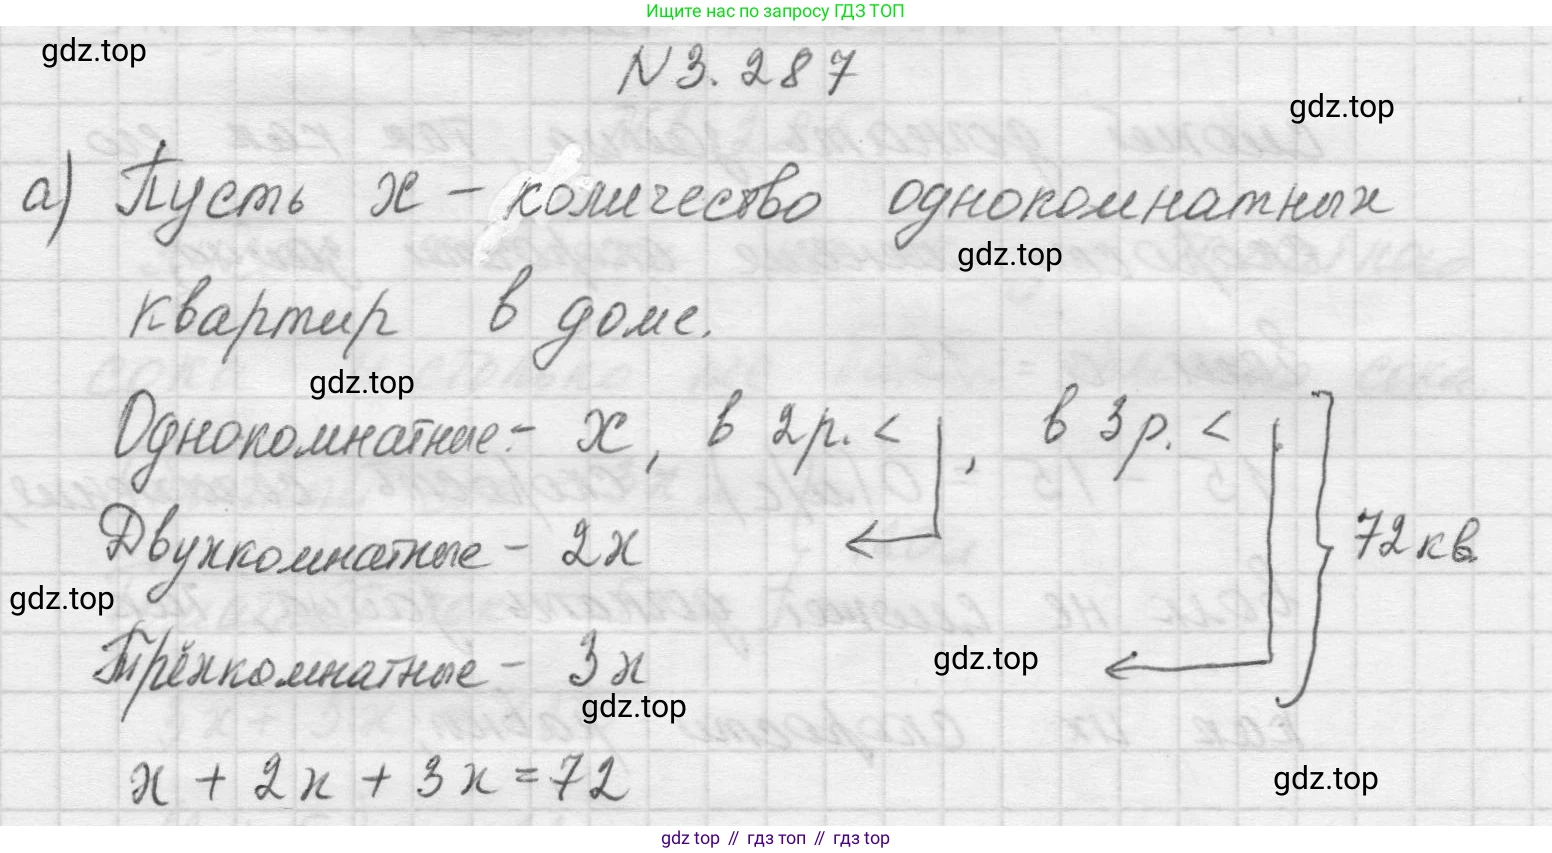 Ищите нас по запросу ГДЗ ТОП
gdz.top
N 3.287
gdz.top
а) Пусть x – количество однокомнатных
gdz.top
квартир в доме.
gdz.top
Однокомнатные – x, в 2р. <, в 3р. <
Двухкомнатные – 2x
72 кв.
gdz.top
Трёхкомнатные – 3x
gdz.top
gdz.top
x + 2x + 3x = 72
gdz.top
gdz top // гдз топ // gdz top